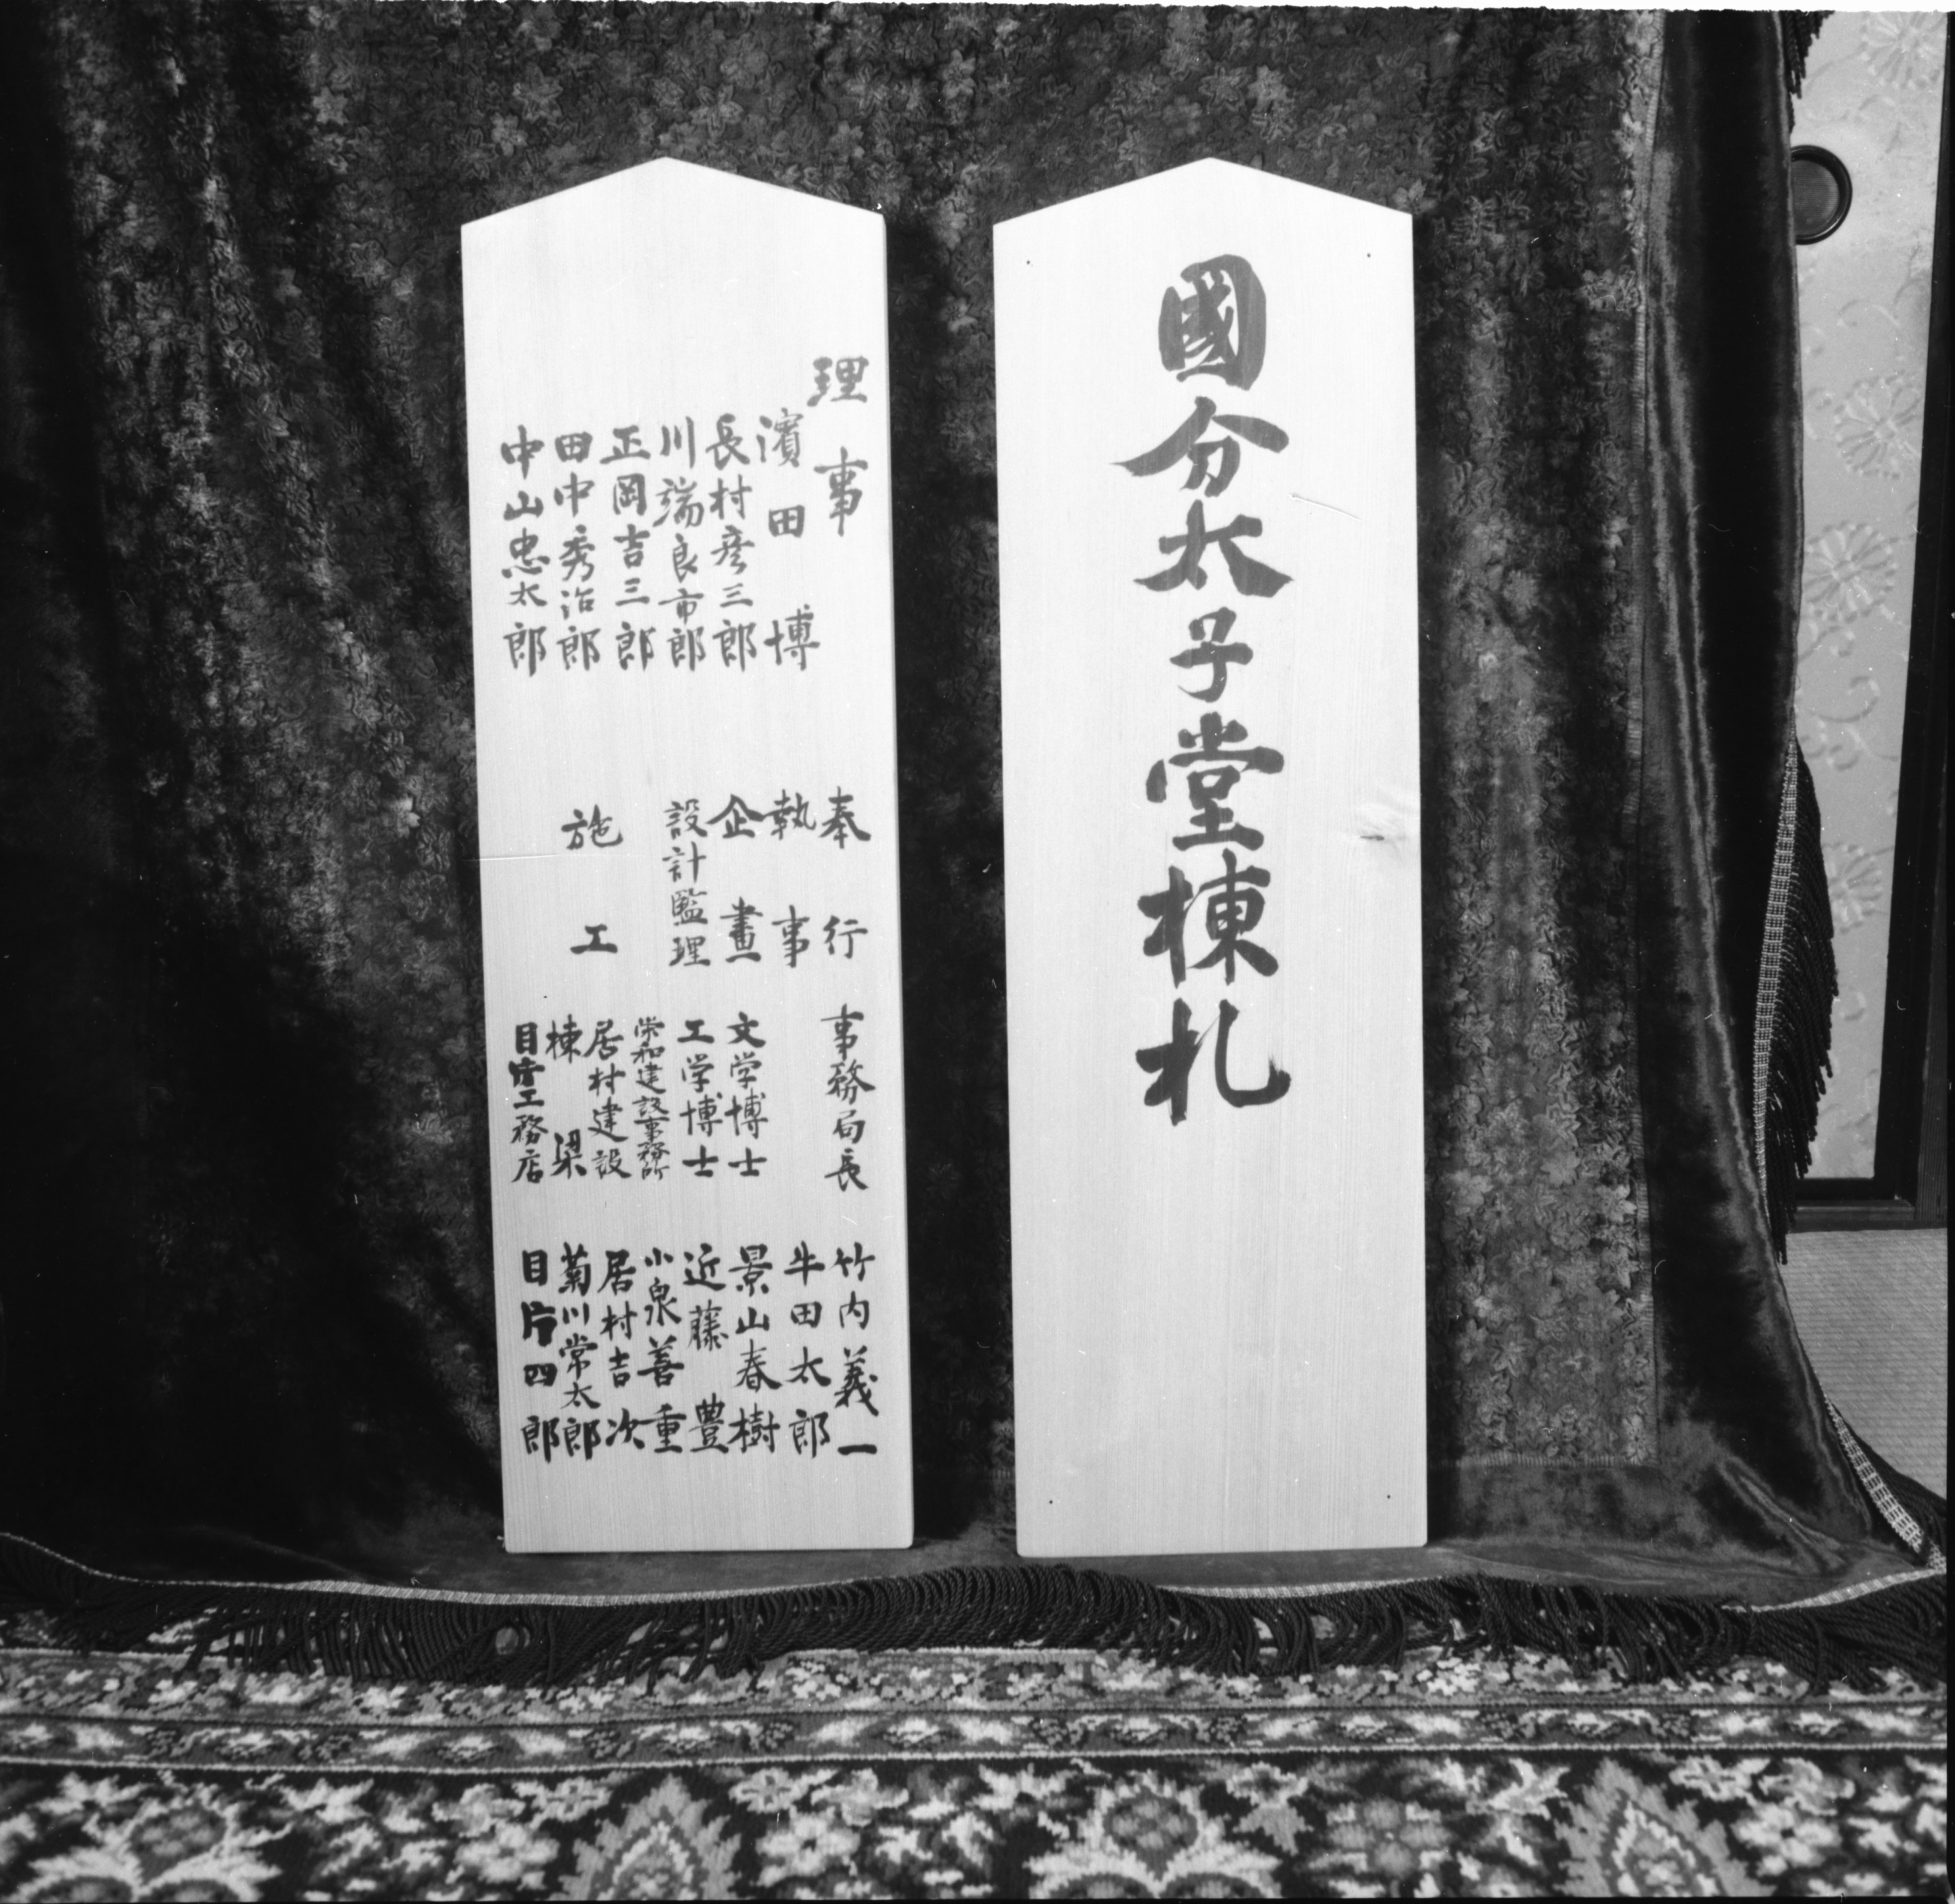 國分太子堂棟札
理事
濱田博
長村彦三郎
川端良市郎
正岡吉三郎
田中秀治郎
中山忠太郎
奉行 事務局長 竹内義一
執事 牛田太郎
企畫 文学博士 景山春樹
工学博士 近藤豊
設計監理 栄和建設事務所 小泉善重
施工 居村建設 居村吉次
棟梁 菊川常太郎
目片工務店 目片四郎